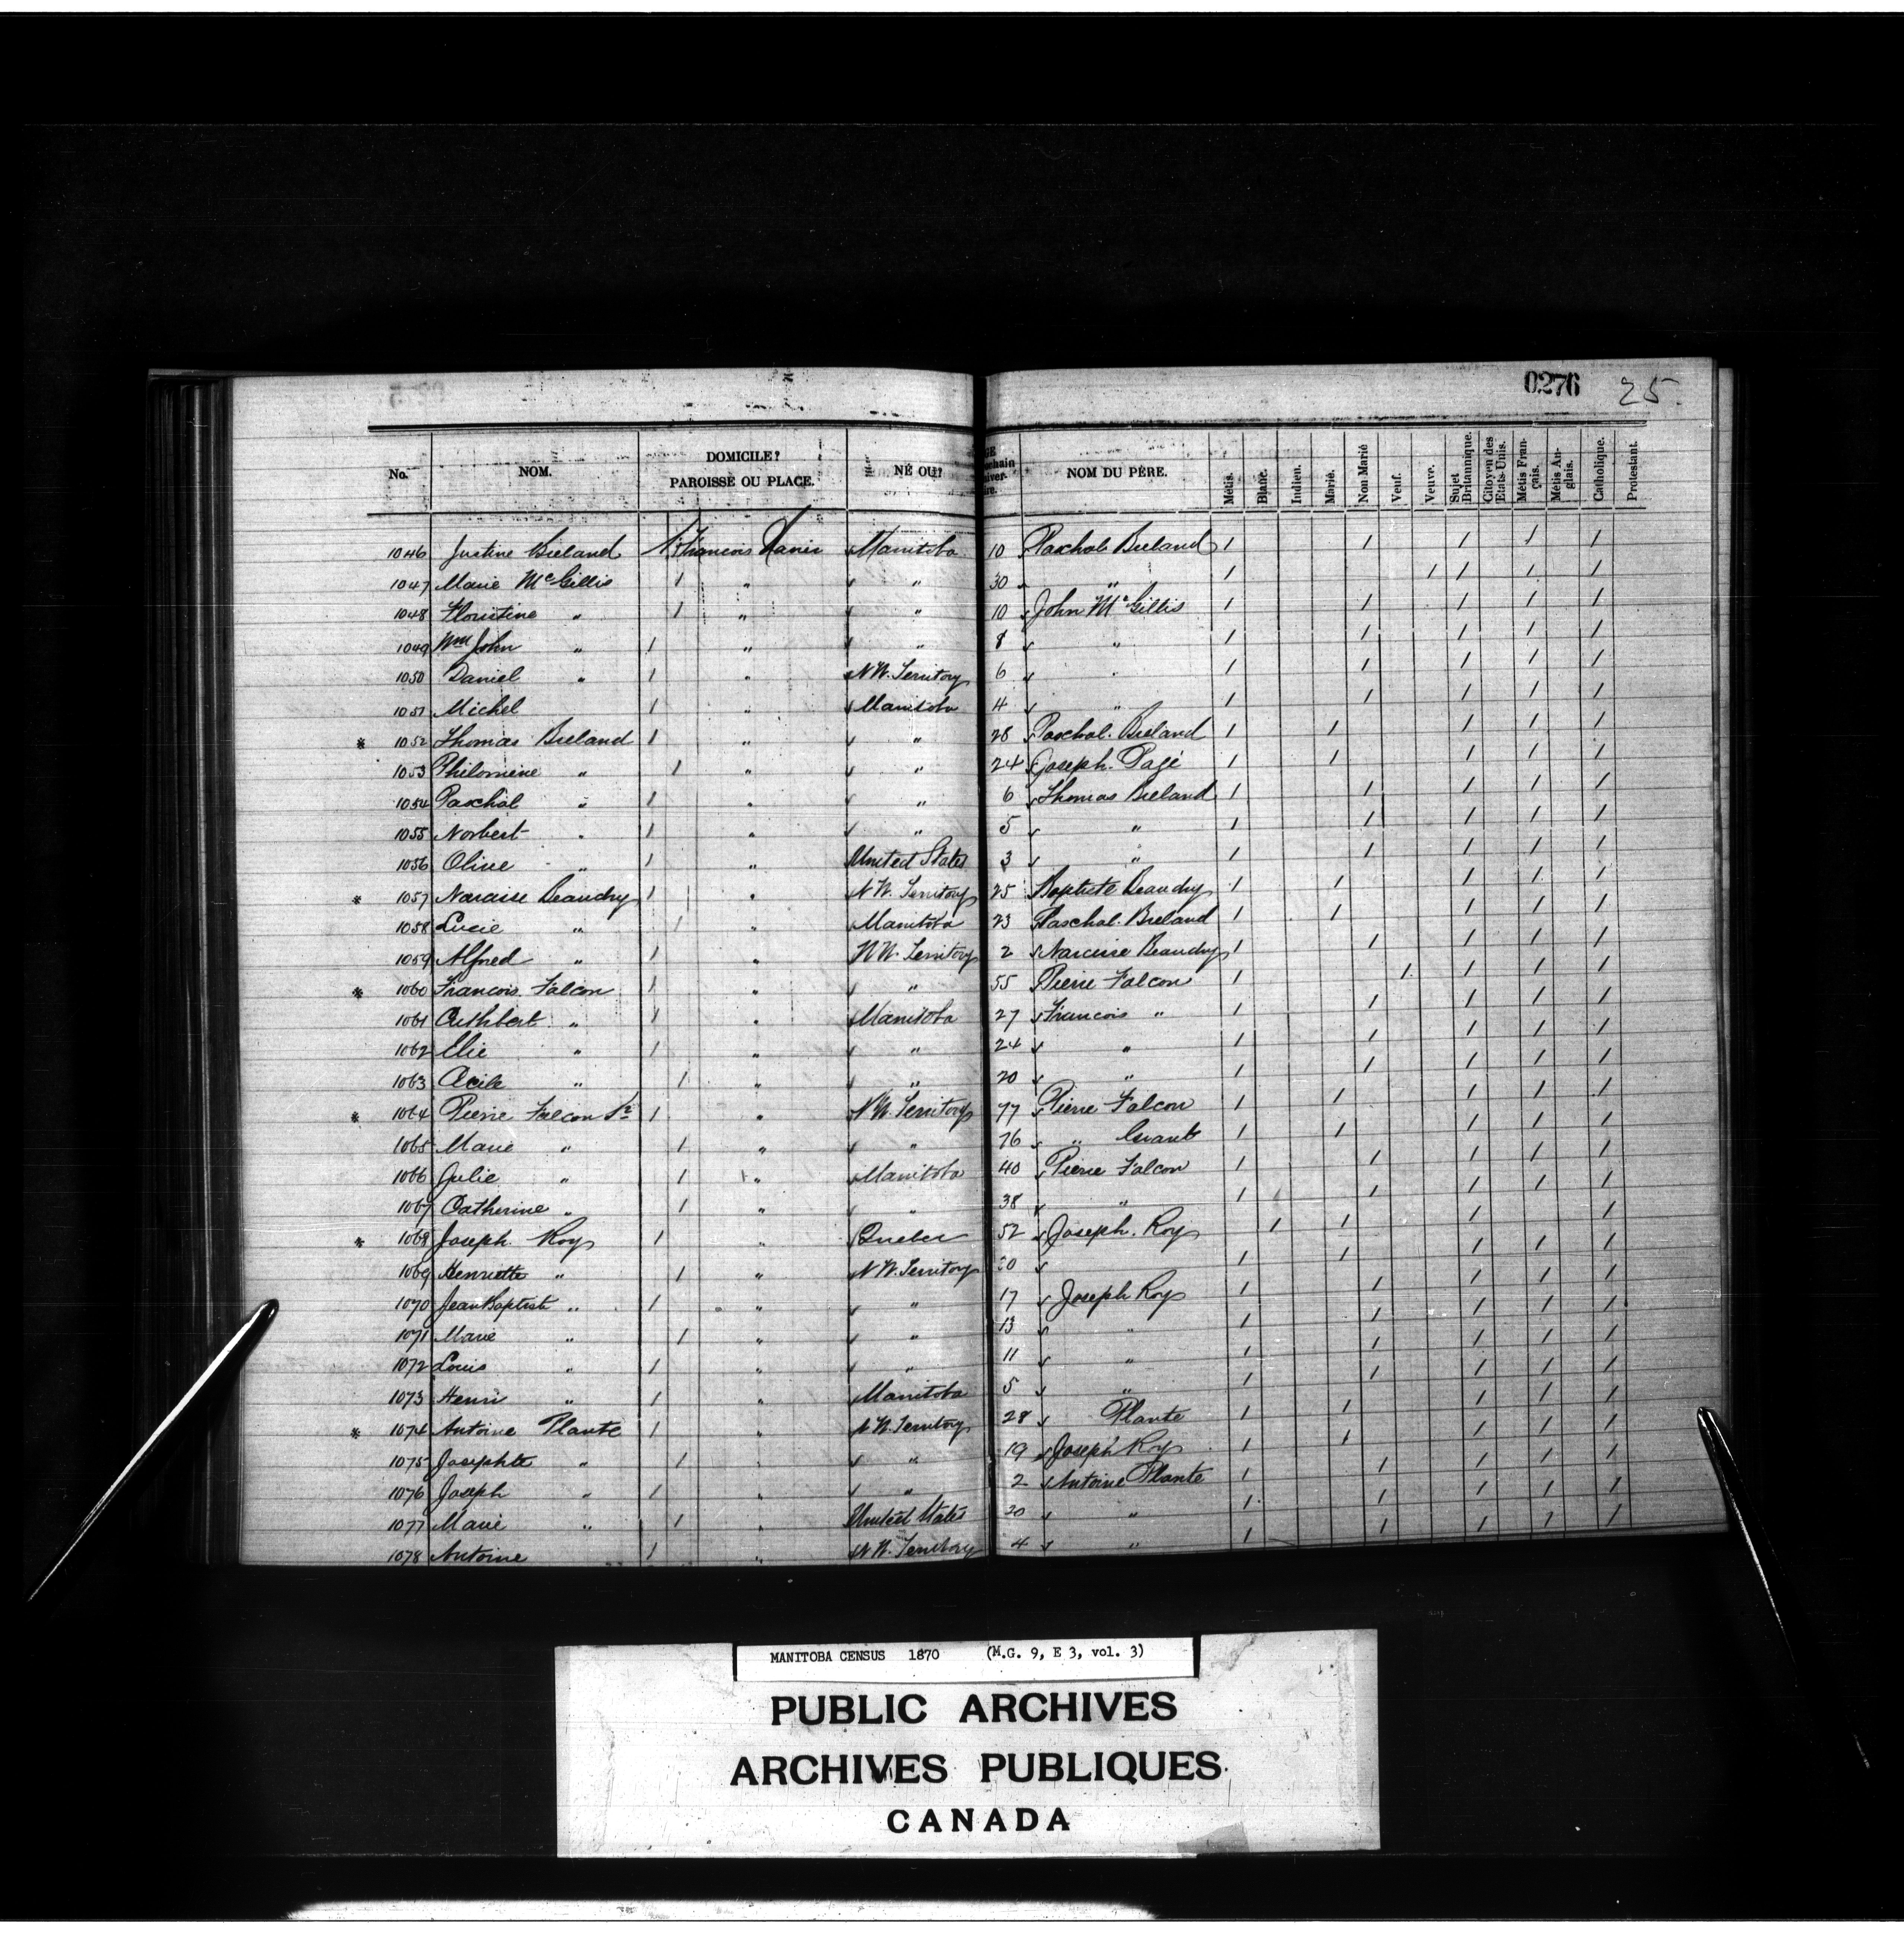 0276 25.
No. NOM. DOMICILE? PAROISSE OU PLACE. NÉ OU? NOM DU PÈRE. Métis. Blanc. Indien. Marié. Non Marié Veuf. Veuve. Sujet Britannique. Citoyen des Etats-Unis. Métis Français. Métis Anglais. Catholique. Protestant.
1046 Justine Breland St François Xavier Manitoba 10 Paschal Breland 1 1 1 1 1
1047 Marie McGillis 1 " " 30 " 1 1 1 1 1
1048 Floristine " 1 " " 10 John McGillis 1 1 1 1 1
1049 Wm John " 1 " " 8 " 1 1 1 1 1
1050 Daniel " 1 " N.W. Territory 6 " 1 1 1 1 1
1051 Michel 1 " Manitoba 4 " 1 1 1 1 1
* 1052 Thomas Breland 1 " " 28 Paschal Breland 1 1 1 1 1
1053 Philomène " 1 " " 24 Joseph Pagé 1 1 1 1 1
1054 Paschal " 1 " " 6 Thomas Breland 1 1 1 1 1
1055 Norbert " 1 " " 5 " 1 1 1 1 1
1056 Olive " 1 " United States 3 " 1 1 1 1 1
* 1057 Narcisse Beaudry 1 " N.W. Territory 25 Baptiste Beaudry 1 1 1 1 1
1058 Lucie " 1 " Manitoba 23 Paschal Breland 1 1 1 1 1
1059 Alfred " 1 " N.W. Territory 2 Narcisse Beaudry 1 1 1 1 1
* 1060 Francois Falcon 1 " " 55 Pierre Falcon 1 1 1 1 1
1061 Cuthbert " 1 " Manitoba 27 Francois " 1 1 1 1 1
1062 Elie " 1 " " 24 " 1 1 1 1 1
1063 Cecile " 1 " " 20 " 1 1 1 1 1
* 1064 Pierre Falcon Sr 1 " N.W. Territory 77 Pierre Falcon 1 1 1 1 1
1065 Marie " 1 " " 76 " Grant 1 1 1 1 1
1066 Julie " 1 " Manitoba 40 Pierre Falcon 1 1 1 1 1
1067 Catherine " 1 " " 38 " 1 1 1 1 1
* 1068 Joseph Roy 1 " Quebec 52 Joseph Roy 1 1 1 1
1069 Henriette " 1 " N.W. Territory 1 1 1 1 1
1070 Jean Baptiste " 1 " " 17 Joseph Roy 1 1 1 1 1
1071 Marie " 1 " " 13 " 1 1 1 1 1
1072 Louis " 1 " " 11 " 1 1 1 1 1
1073 Henri " 1 " Manitoba 5 " 1 1 1 1 1
* 1074 Antoine Plante 1 " N.W. Territory 28 Plante 1 1 1 1 1
1075 Josephte " 1 " " 19 Joseph Roy 1 1 1 1 1
1076 Joseph " 1 " " 2 Antoine Plante 1 1 1 1 1
1077 Marie " 1 " United States " 1 1 1 1 1
1078 Antoine 1 " N.W. Territory 4 " 1 1 1 1 1
MANITOBA CENSUS 1870 (M.G. 9, E 3, vol. 3)
PUBLIC ARCHIVES
ARCHIVES PUBLIQUES
CANADA